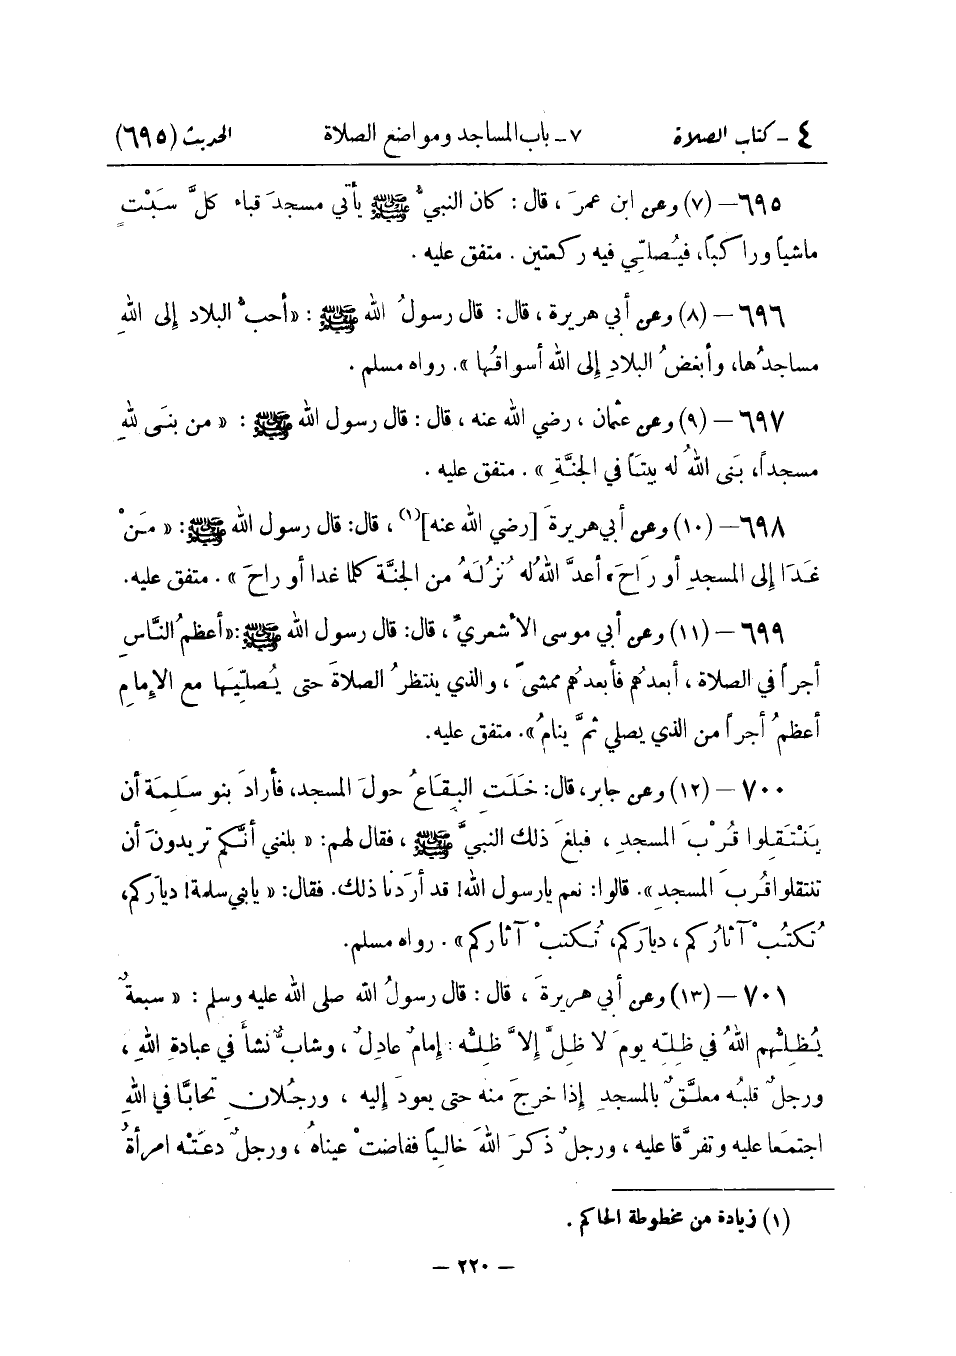 ٤ - كتاب الصلاة ٧ - باب المساجد ومواضع الصلاة الحديث (٦٩٥)
٦٩٥ - (٧) وعن ابن عمرَ ، قال : كان النبيُّ ﷺ يأتي مسجدَ قباء كلَّ سَبْتٍ
ماشياً وراكباً، فيُصلّي فيه ركعتين . متفق عليه .
٦٩٦ - (٨) وعن أبي هريرة ، قال : قال رسولُ الله ﷺ : «أحبُّ البلاد إلى اللهِ
مساجدُها، وأبغضُ البلادِ إلى الله أسواقُها ». رواه مسلم .
٦٩٧ - (٩) وعن عثمان ، رضي الله عنه ، قال : قال رسول الله ﷺ : « من بنَى للهِ
مسجداً، بَنى اللهُ له بيتَاً في الجنَّةِ » . متفق عليه .
٦٩٨ - (١٠) وعن أبي هريرةَ [رضي الله عنه](١) ، قال: قال رسول الله ﷺ: « مَنْ
غَدَا إلى المسجدِ أو رَاحَ، أعدَّ اللهُ له نُزُلَهُ من الجنَّة كلما غدا أو راحَ » . متفق عليه.
٦٩٩ - (١١) وعن أبي موسى الأشعريِّ ، قال: قال رسول الله ﷺ :«أعظمُ النَّاسِ
أجراً في الصلاة ، أبعدُهم فأبعدهم ممشىً ، والذي ينتظرُ الصلاةَ حتى يُصلِّيَها مع الإمامِ
أعظمُ أجراً من الذي يصلي ثمَّ ينامُ». متفق عليه.
٧٠٠ - (١٢) وعن جابر، قال: خَلَتِ البِقَاعُ حولَ المسجد، فأرادَ بنو سلِمةَ أن
يَنْتَقِلوا قُرْبَ المسجدِ ، فبلغَ ذلك النبيَّ ﷺ ، فقال لهم: « بلغني أنَّكم تريدونَ أن
تنتقلوا قُربَ المسجدِ ». قالوا: نعم يارسول الله! قد أردْنا ذلك. فقال: « يابني سلمة! ديارَكم،
تُكتبْ آثارُكم ، ديارَكم، تُكتبْ آثاركم» . رواه مسلم.
٧٠١ - (١٣) وعن أبي هريرةَ ، قال : قال رسولُ الله صلى الله عليه وسلم : « سبعةٌ
يُظِلُّهم اللهُ في ظِلِّه يومَ لا ظِلَّ إلاَّ ظِلُّه : إمامٌ عادِلٌ ، وشابٌّ نشأَ في عبادةِ اللهِ ،
ورجلٌ قلبُه معلَّقٌ بالمسجدِ إذا خرجَ منه حتى يعودَ إليه ، ورجُلانِ تحابَّا في اللهِ
اجتمَعا عليه وتفرَّقا عليه ، ورجلٌ ذكرَ اللهَ خالياً ففاضتْ عيناهُ ، ورجلٌ دعَتْه امرأةٌ
(١) زيادة من مخطوطة الحاكم .
- ٢٢٠ -